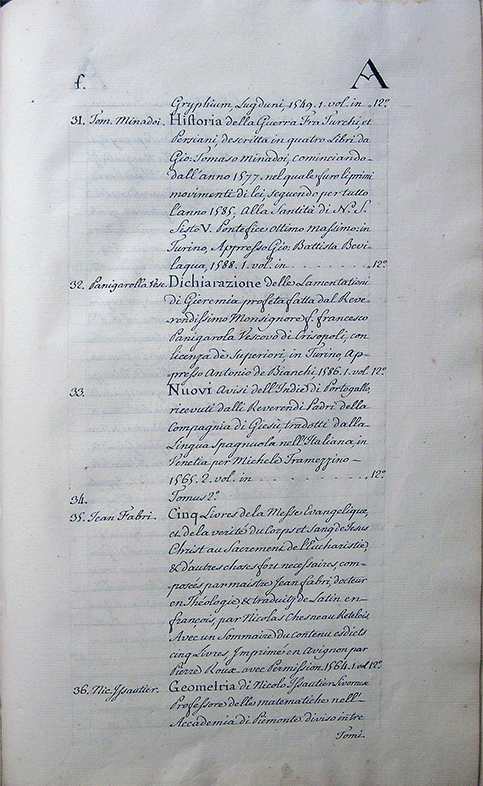 f. A
Gryphium, Lugduni, 1549. 1. vol. in .. 12º
31. Tom. Minadoi. Historia della Guerra Fra Turchi, et
Persiani, descritta in quatro Libri da
Gio: Tomaso Minadoi, cominciando
dall'anno 1577. nel quale furo li primi
movimenti di lei, seguendo per tutto
l'anno 1585. Alla Santità di N. S.
Sisto V. Pontefice Ottimo Massimo: in
Turino, Appresso Gio: Battista Bevi-
laqua, 1588. 1. vol. in . . . . . . . . 12º
32. Panigarolla Dichiarazione delle Lamentationi
di Gieremia profeta fatta dal Reve-
rendissimo Monsignore f. francesco
Panigarola Vescovo di Crisopoli, con
licenza de' Superiori, in Turino Ap-
presso Antonio de Bianchi, 1586. 1. vol. 12º
33. Nuovi Avisi dell'Indie di Portogallo,
ricevuti dalli Reverendi Padri della
Compagnia di Giesù, tradotti dalla
Lingua Spagnuola nell'Italiana, in
Venetia per Michele Tramezzino
1565. 2. vol. in . . . . . . . . 12º
34. Tomus 2º
35. Jean Fabri. Cinq Livres de la Messe Evangelique,
et de la verité du Corps et Sang de Jesus
Christ au Sacrement de l'Eucharistie,
& d'autres choses fort necessaires, com-
posés par maistre Jean fabri, docteur
en Théologie & traduits de Latin en
françois, par Nicolas Chesneau Retelois
Avec un Sommaire du contenu esdicts
cinq Livres Imprimé en Avignon par
Pierre Roux avec Permission. 1564. 1. vol 12º
36. Nic. Issautier. Geometria di Nicolo Issautier Livornese
Professore delle matematiche nell'
Accademia di Piemonte divisa in tre
Tomi.